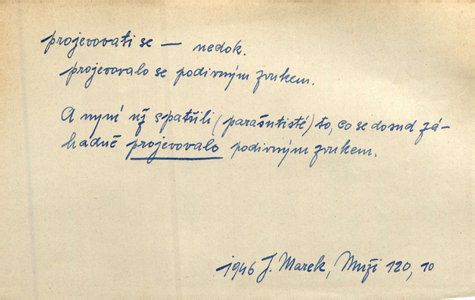 projevovati se — nedok.
projevovalo se podivným zvukem.
A nyní už spatřili (parašutisté) to, co se dosud zá-
hadně projevovalo podivným zvukem.
1946 J. Marek, Muži 120, 10